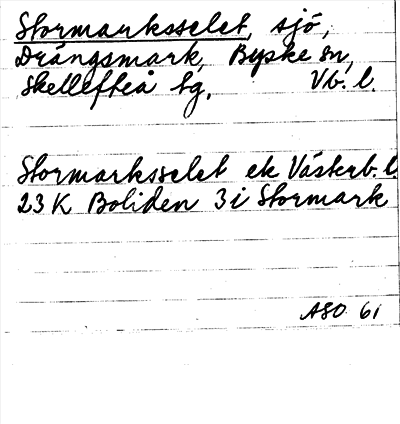 Stormarksselet, sjö,
Drängsmark, Byske sn,
Skellefteå tg, Vb. l.
Stormarksselet ek Västerb. l.
23 K Boliden 3 i Stormark
ASO 61